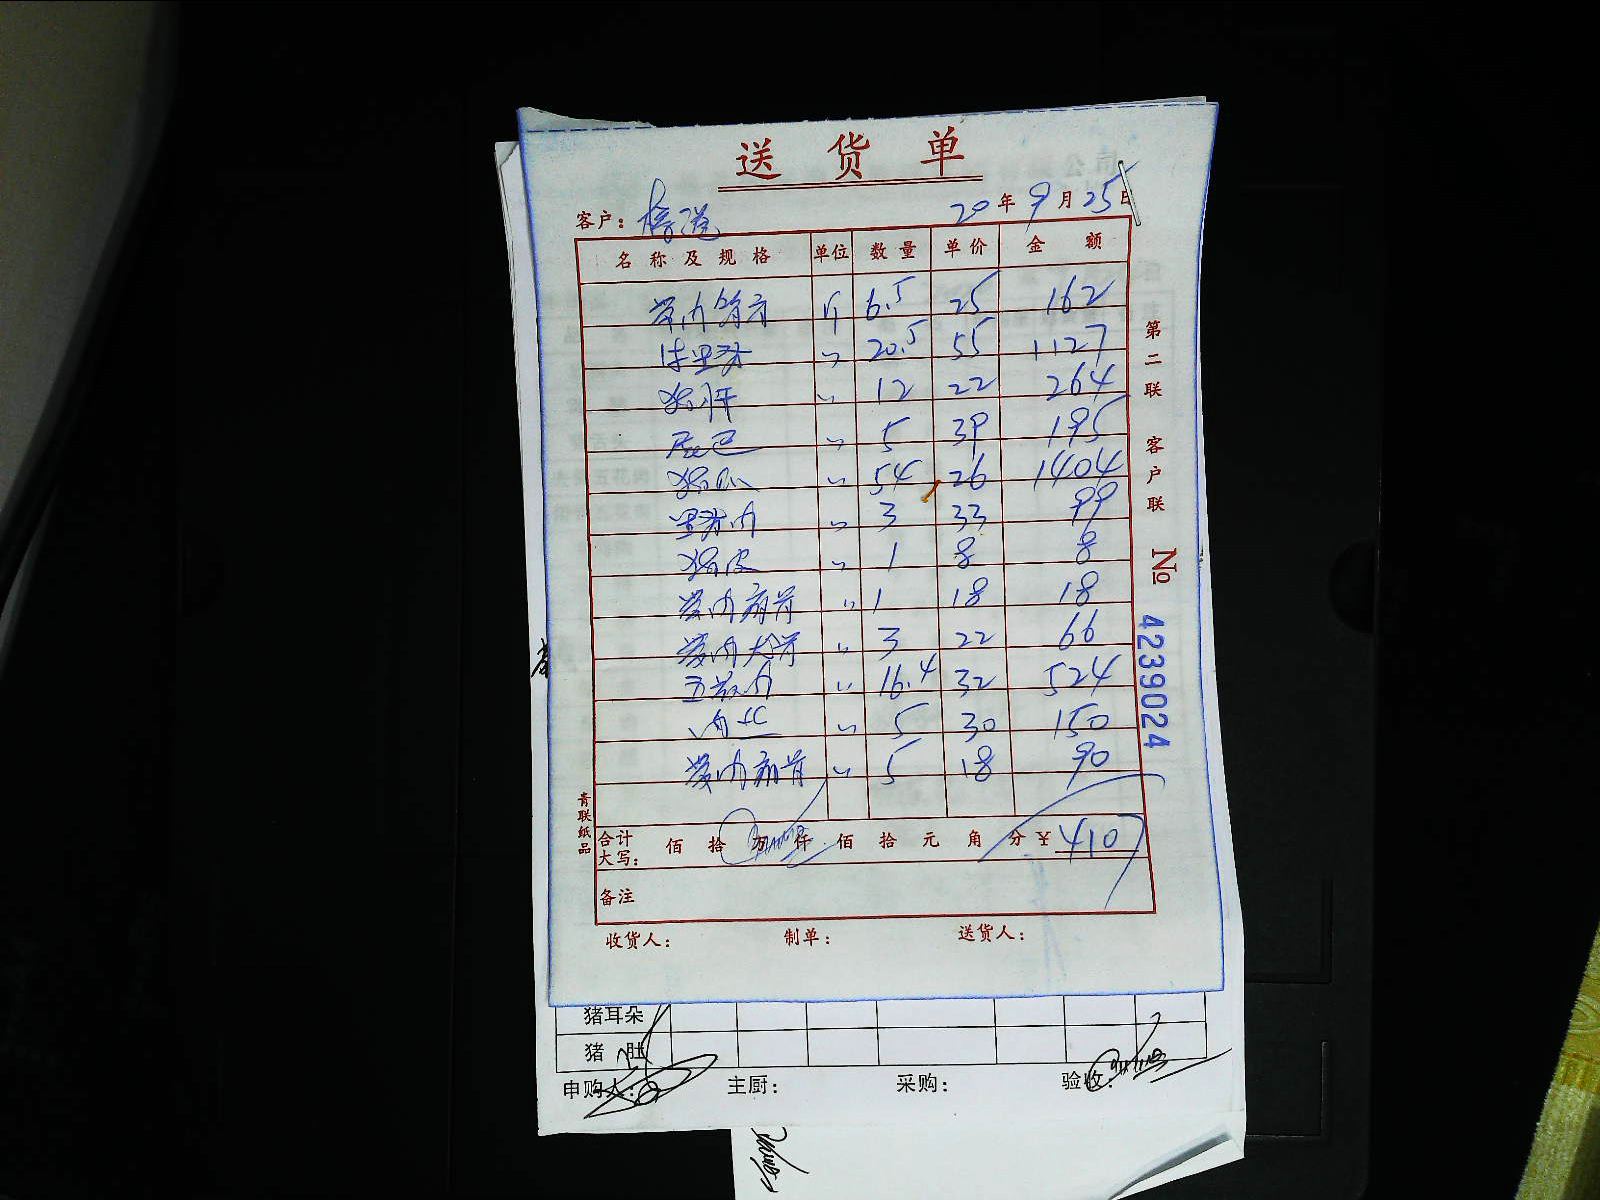 送货单
客户： 20年9月25日
名称及规格 单位 数量 单价 金额
斤 6.5 25 162
〃 20.5 55 1127
猪肝 〃 12 22 264
尾巴 〃 5 39 195
猪 〃 54 26 1404
里脊肉 〃 3 33 99
猪皮 〃 1 8 8
带肉扇骨 〃 1 18 18
带肉大骨 〃 3 22 66
五花肉 〃 16.4 32 524
肉丝 〃 5 30 150
带肉扇骨 〃 5 18 90
合计大写： 佰 拾 万 仟 佰 拾 元 角 分 ¥ 4107
备注
收货人： 制单： 送货人：
第二联 客户联
№ 4239024
青联纸品
猪耳朵
猪肚
申购人： 主厨： 采购： 验收：